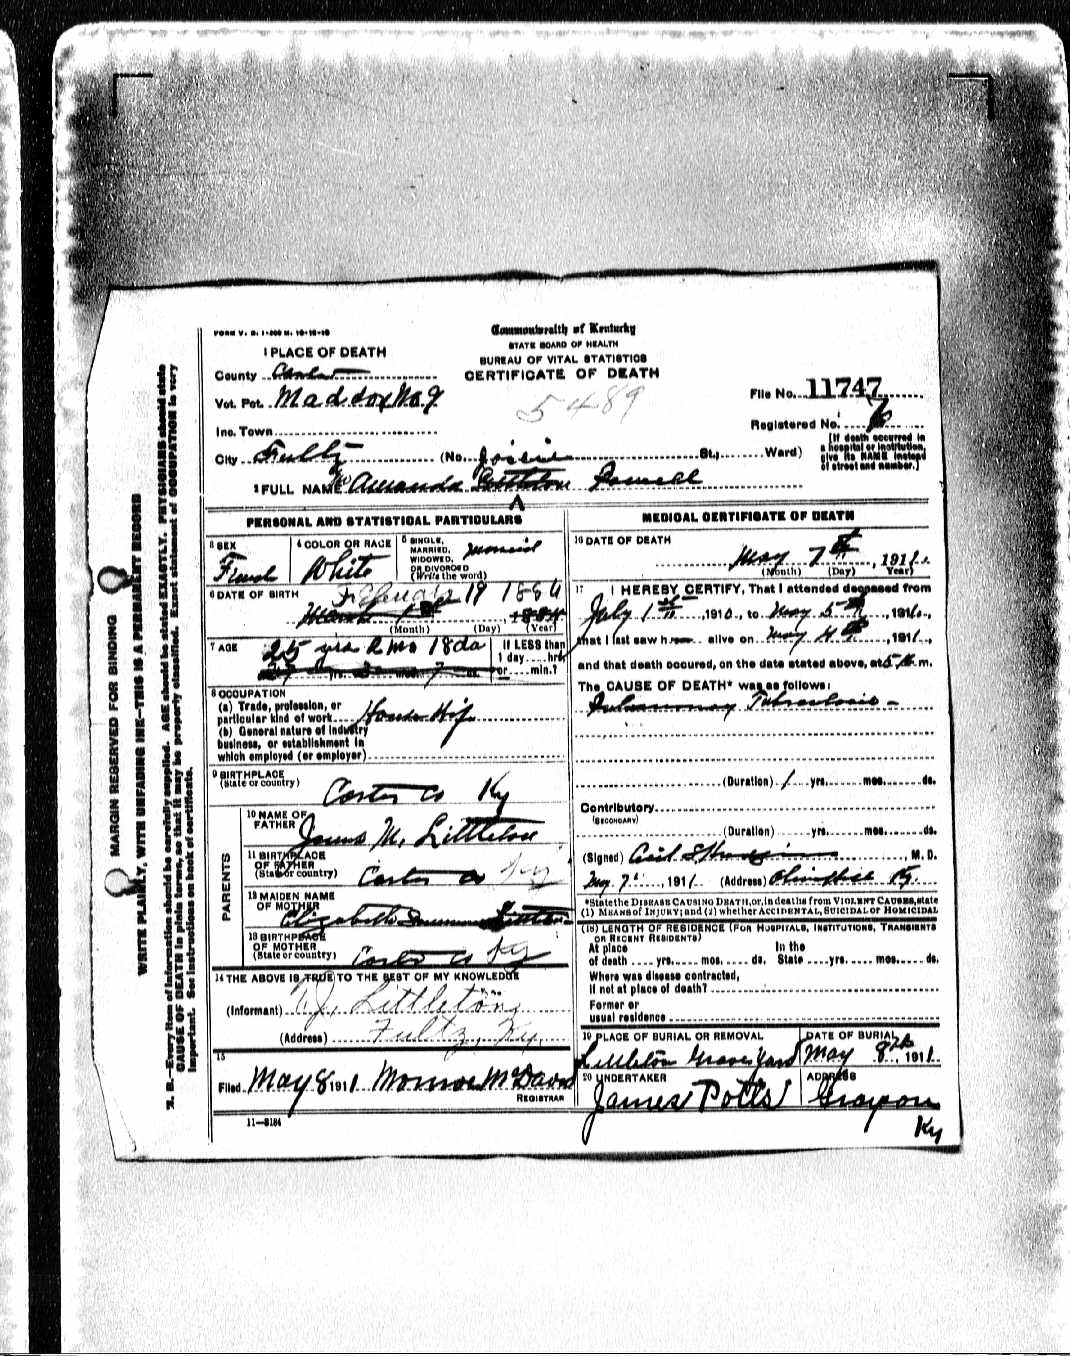 FORM V. S. 1-200 M. 10-18-10
Commonwealth of Kentucky
STATE BOARD OF HEALTH
BUREAU OF VITAL STATISTICS
CERTIFICATE OF DEATH
5489
1 PLACE OF DEATH
County Carter
Vot. Pct. Maddox No. 9
Inc. Town
City Fultz (No. Josie St.; Ward)
File No. 11747
Registered No. 76
[If death occurred in a hospital or institution, give its NAME instead of street and number.]
2 FULL NAME Amanda Littleton Powell
PERSONAL AND STATISTICAL PARTICULARS
3 SEX
Female
4 COLOR OR RACE
White
5 SINGLE, MARRIED, WIDOWED, OR DIVORCED (Write the word)
Married
6 DATE OF BIRTH
February 19 1886
March 1884
(Month) (Day) (Year)
7 AGE
25 yrs 2 mo 18 da
27 yrs. 3 mos. 7 ds.
If LESS than 1 day....hrs. or....min.?
8 OCCUPATION
(a) Trade, profession, or particular kind of work House Wife
(b) General nature of industry business, or establishment in which employed (or employer)
9 BIRTHPLACE
(State or country)
Carter Co Ky
PARENTS
10 NAME OF FATHER
James M. Littleton
11 BIRTHPLACE OF FATHER (State or country)
Carter Co Ky
12 MAIDEN NAME OF MOTHER
Elizabeth Littleton
13 BIRTHPLACE OF MOTHER (State or country)
Carter Co Ky
14 THE ABOVE IS TRUE TO THE BEST OF MY KNOWLEDGE
(Informant) Littleton
(Address) Fultz, Ky.
15
Filed May 8 1911 Monroe McDavid
REGISTRAR
11—3184
MEDICAL CERTIFICATE OF DEATH
16 DATE OF DEATH
May 7th, 1911
(Month) (Day) (Year)
17 I HEREBY CERTIFY, That I attended deceased from
July 1st, 1910, to May 5th, 1911,
that I last saw her alive on May 4th, 1911,
and that death occured, on the date stated above, at 5 m.
The CAUSE OF DEATH* was as follows:
Pulmonary Tuberculosis
(Duration) 1 yrs. mos. ds.
Contributory
(SECONDARY)
(Duration) yrs. mos. ds.
(Signed) Cecil, M. D.
May 7, 1911 (Address) Olive Hill Ky.
*State the DISEASE CAUSING DEATH, or, in deaths from VIOLENT CAUSES, state
(1) MEANS OF INJURY; and (2) whether ACCIDENTAL, SUICIDAL OR HOMICIDAL
(18) LENGTH OF RESIDENCE (FOR HOSPITALS, INSTITUTIONS, TRANSIENTS OR RECENT RESIDENTS)
At place of death yrs. mos. ds. In the State yrs. mos. ds.
Where was disease contracted,
If not at place of death?
Former or
usual residence
19 PLACE OF BURIAL OR REMOVAL
Littleton Grave Yard
DATE OF BURIAL
May 8th 1911
20 UNDERTAKER
James Potts
ADDRESS
Grayson Ky
MARGIN RESERVED FOR BINDING
WRITE PLAINLY, WITH UNFADING INK—THIS IS A PERMANENT RECORD
N. B.—Every item of information should be carefully supplied. AGE should be stated EXACTLY. PHYSICIANS should state
CAUSE OF DEATH in plain terms, so that it may be properly classified. Exact statement of OCCUPATION is very
important. See instructions on back of certificate.